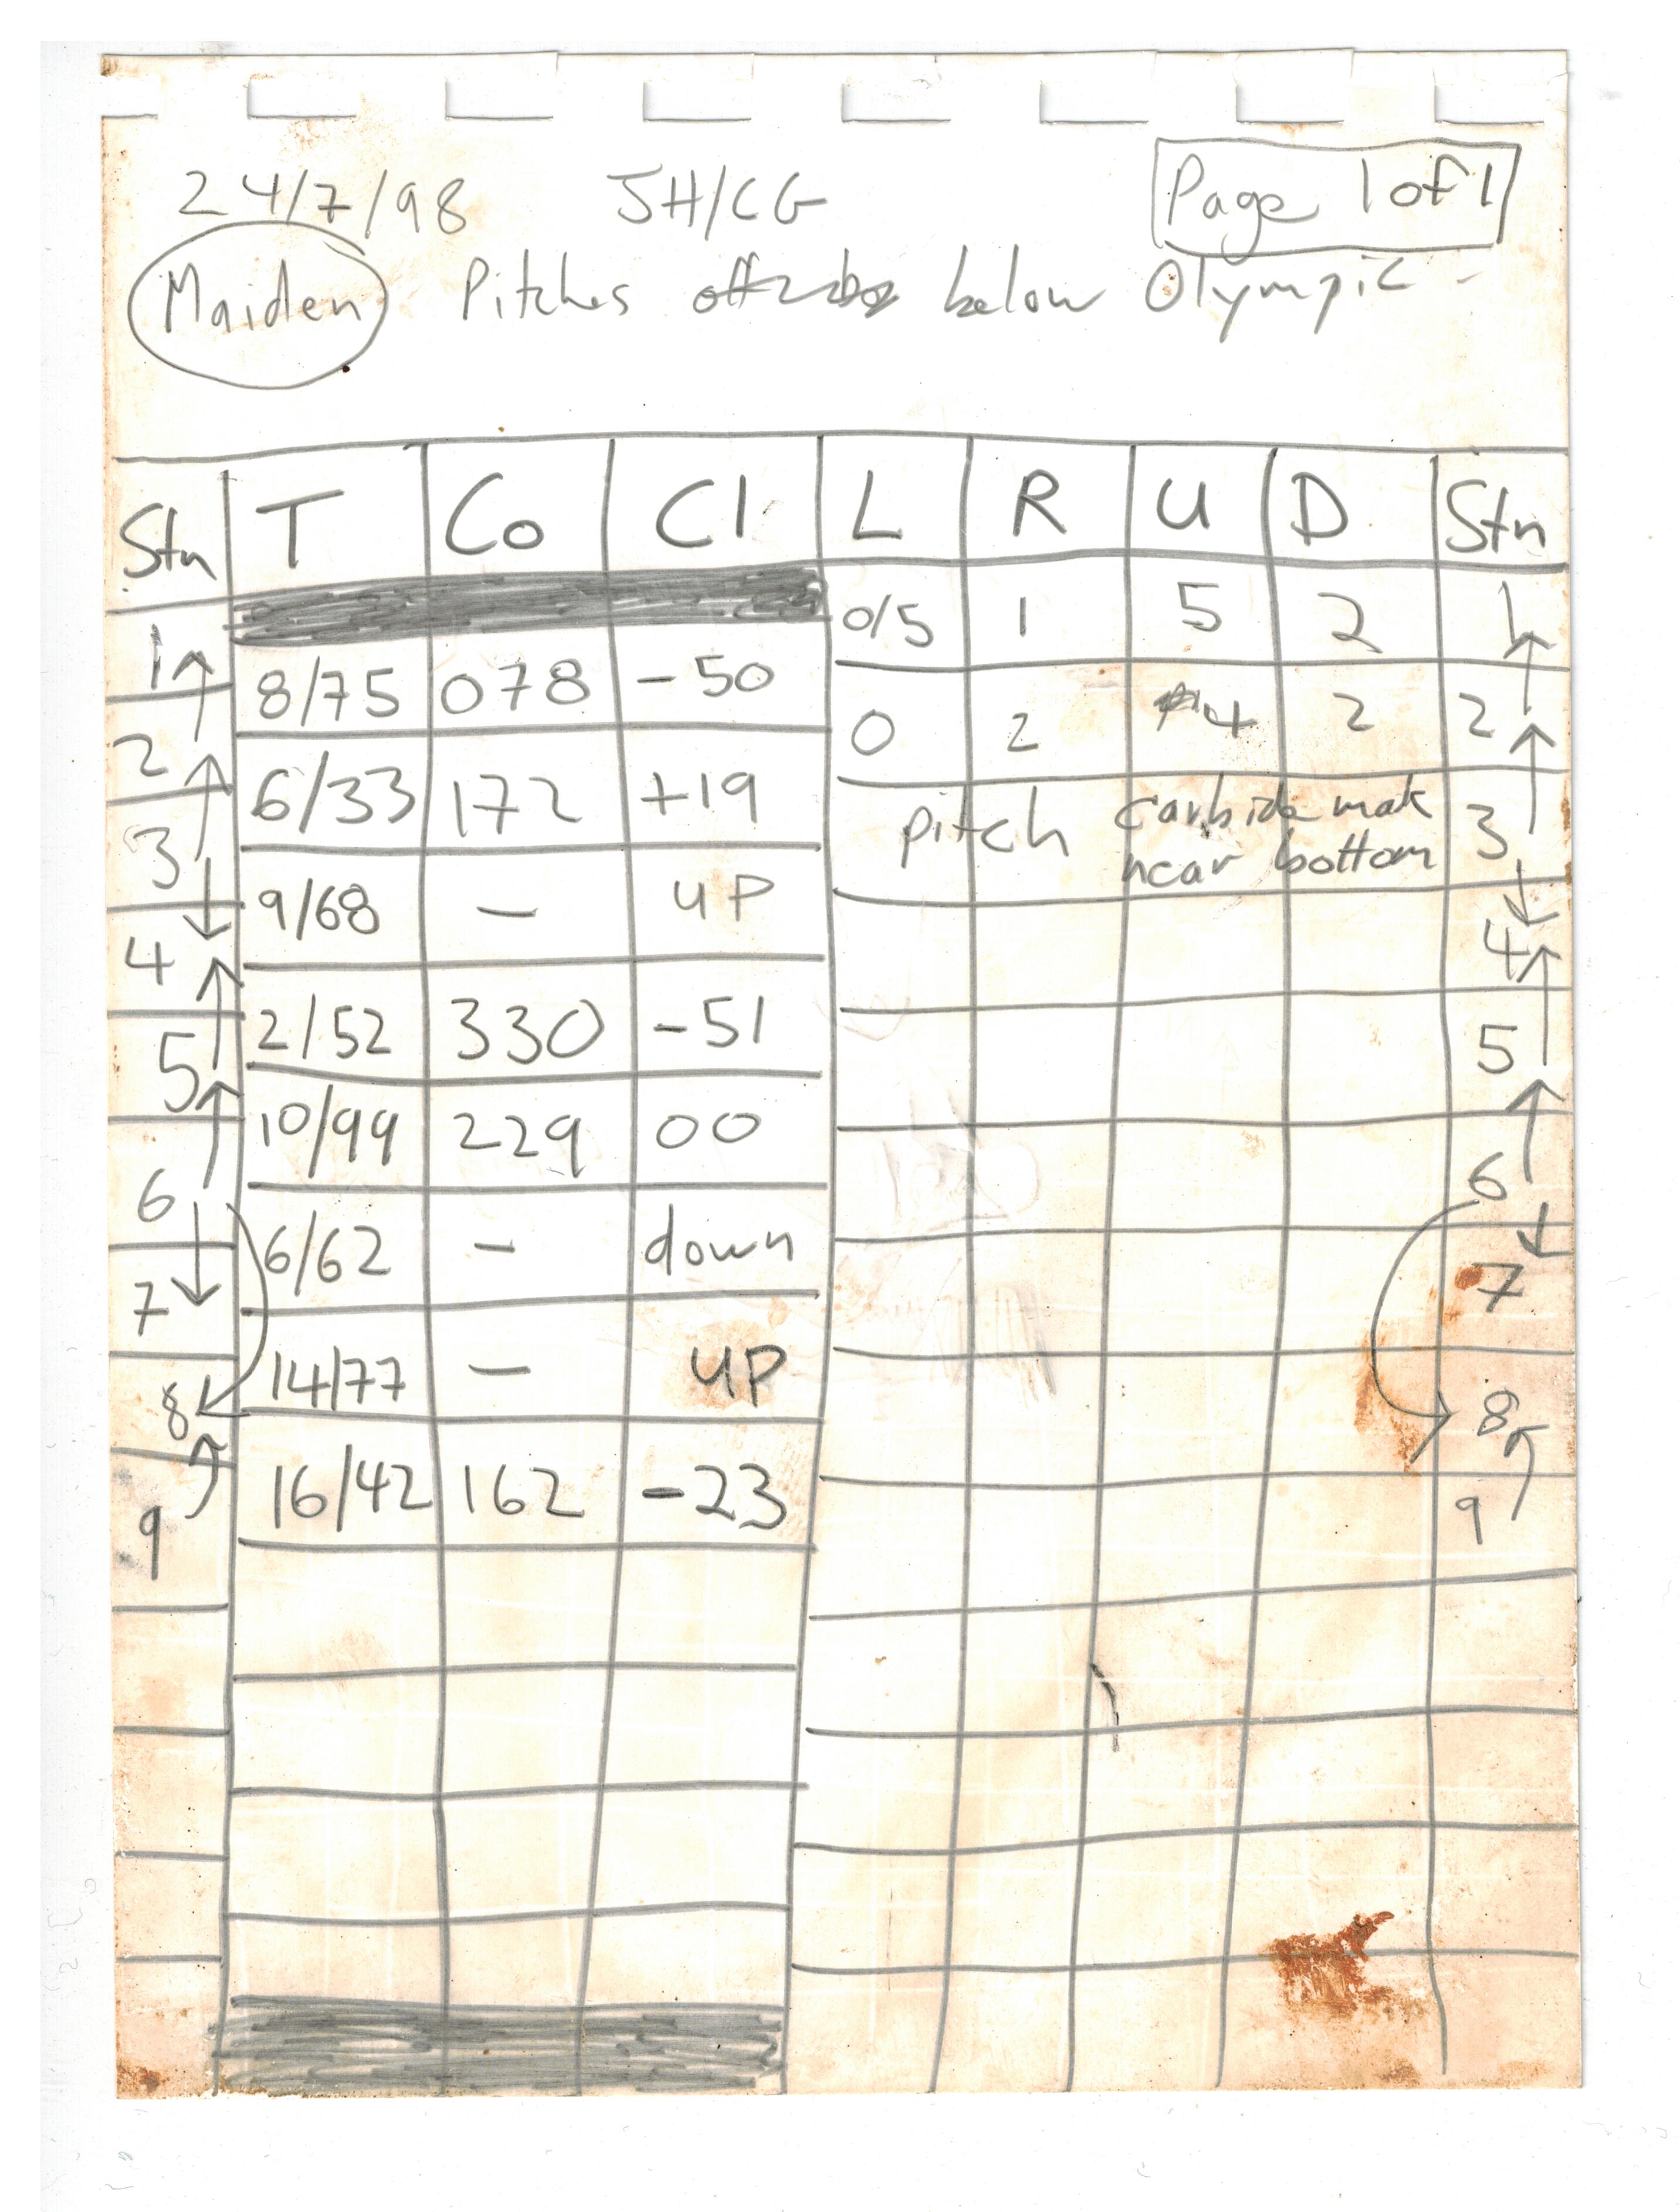 24/7/98 JH/CG Page 1 of 1
Maiden Pitches below Olympic -
Stn T Co Cl L R U D Stn
1 0/5 1 5 2 1
8/75 078 -50
2 0 2 4 2 2
6/33 172 +19
3 pitch carbide mark near bottom 3
9/68 - UP
4 4
2/52 330 -51
5 5
10/99 229 00
6 6
6/62 - down
7 7
14/77 - UP
8 8
16/42 162 -23
9 9